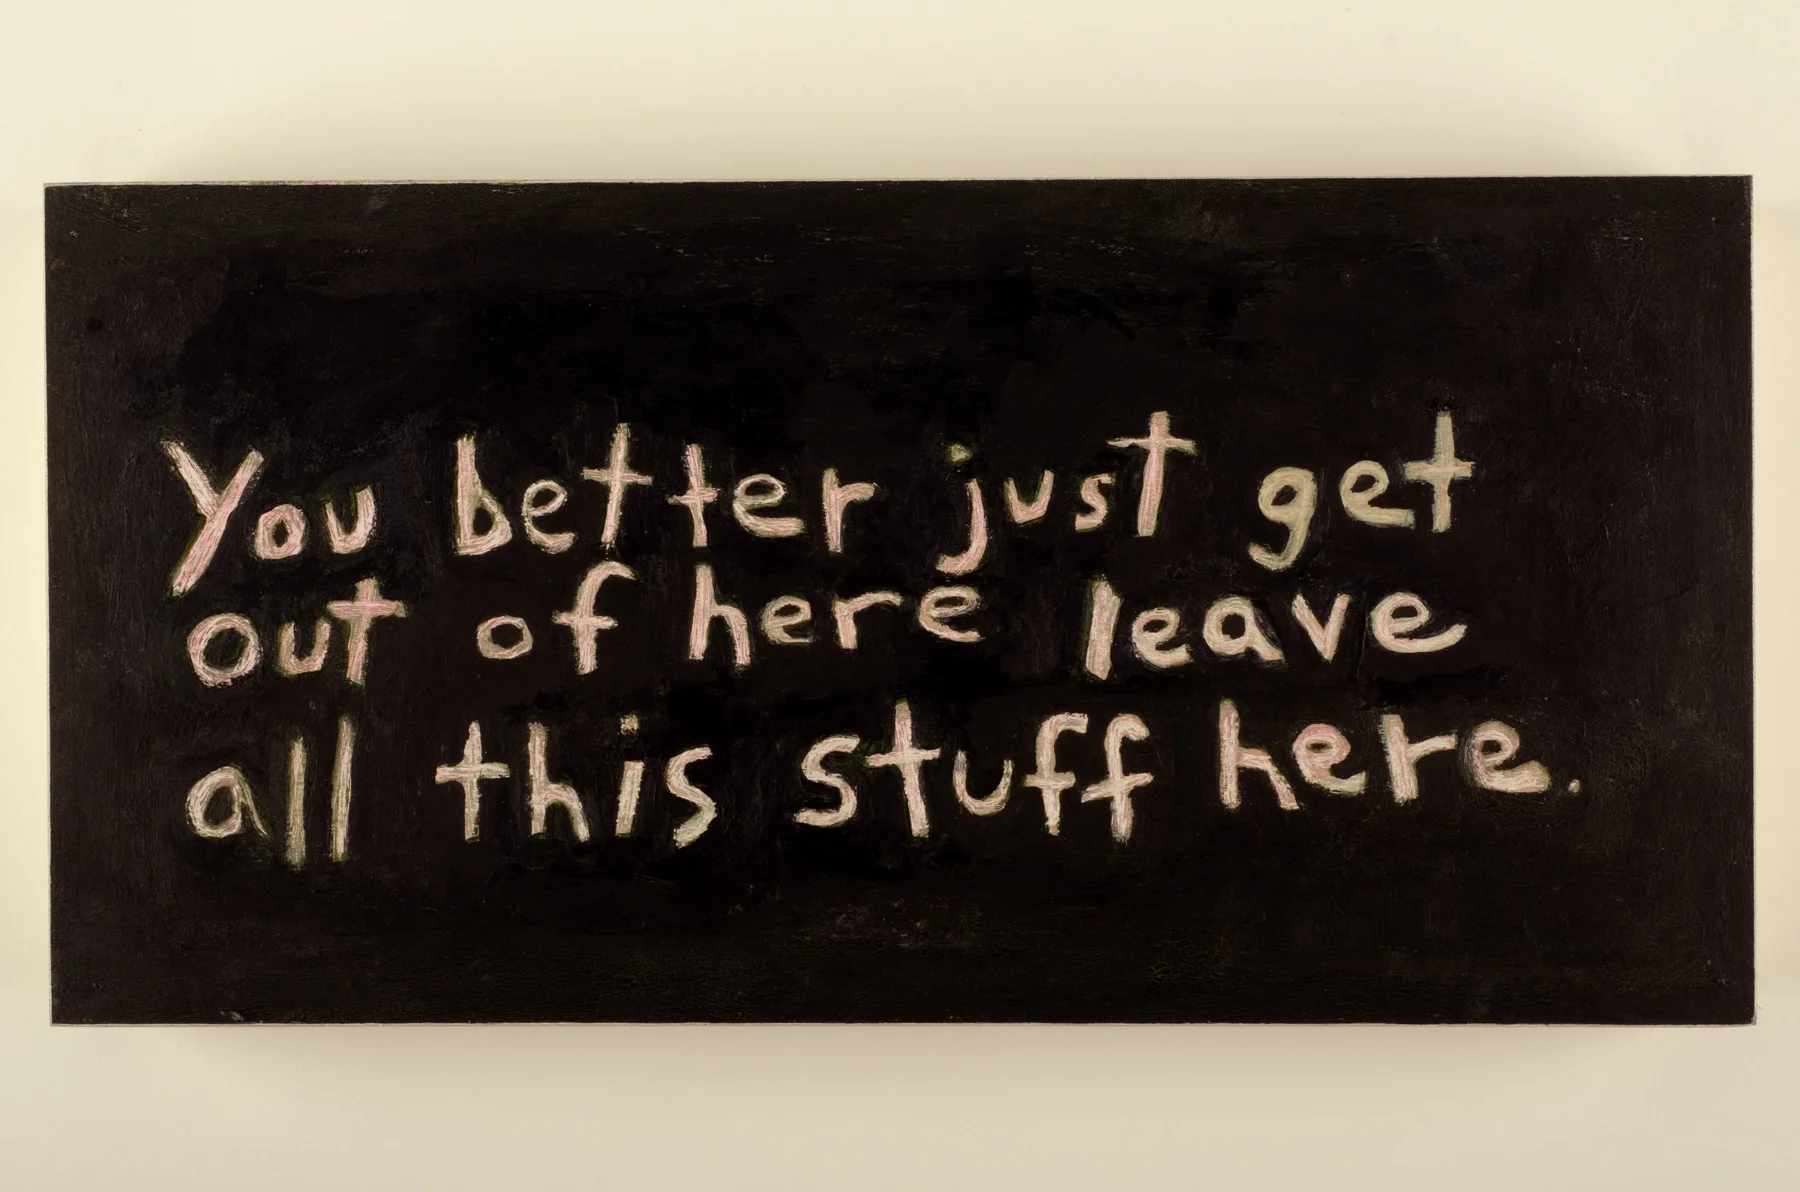 You better just get
out of here leave
all this stuff here.